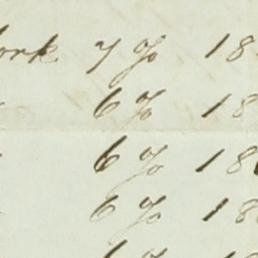 ork 7 % 18
6 % 18
6 % 18
6 % 18
6 % 18